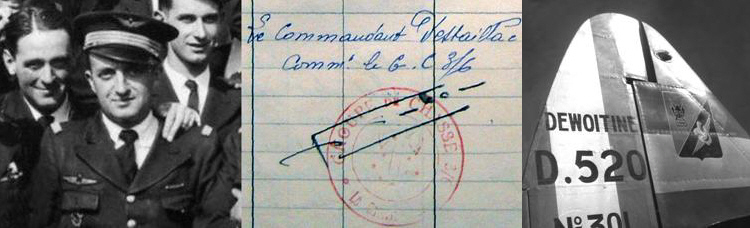 Le Commandant
Comm^t le G. C 3/6
GROUPE DE CHASSE
DEWOITINE
D.520
No 301